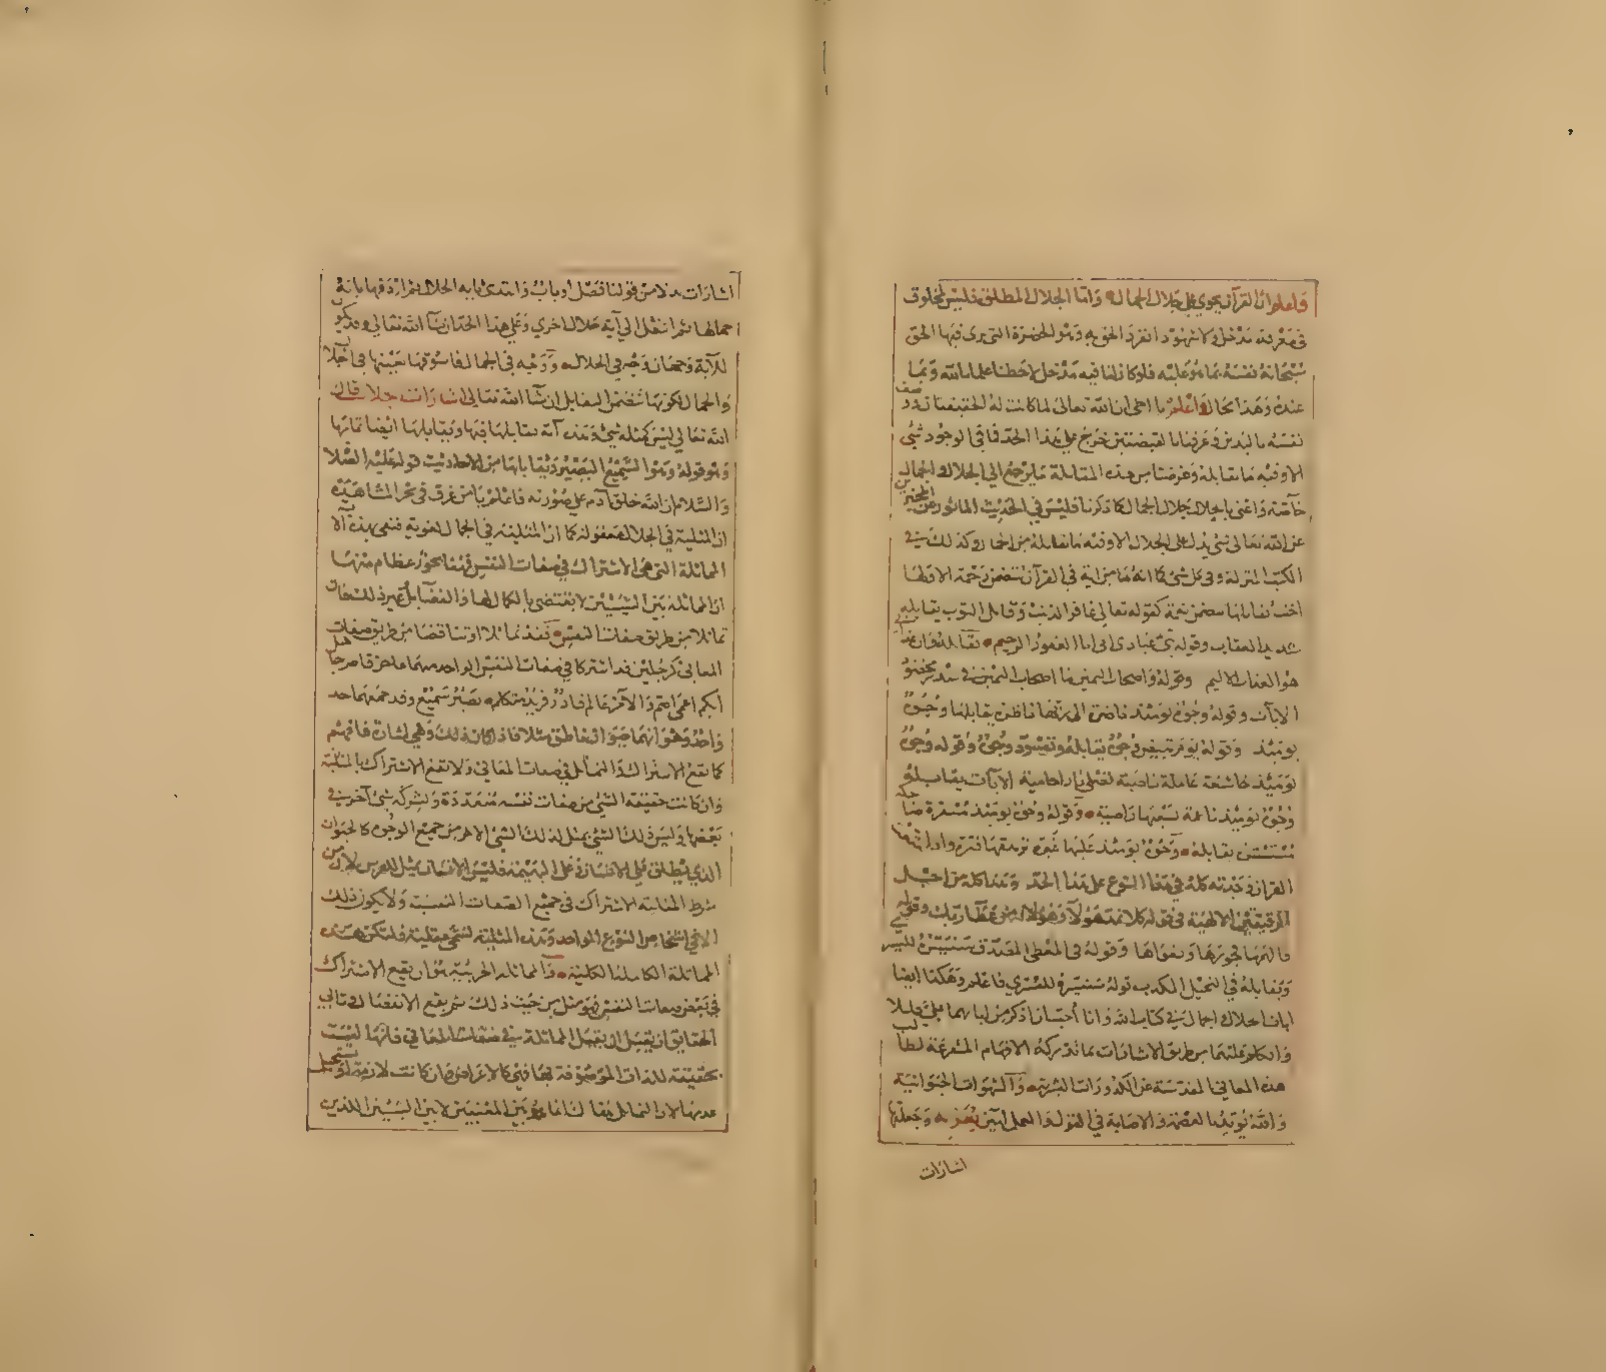 فاعلم ان القرآن يحوي على جلال الجمال وامّا الجلال المطلق فليس لمخلوق
في معرفته مدخل ولا شهود انفرد الحق به وهو الحضرة التي يرى فيها الحق
سبحانه نفسه بما هو عليه فلو كان لنا فيه مدخل لاحطنا علما بالله وبما
عنده وهذا محال واعلم يا اخي ان الله تعالى لما كانت له الحقيقتان ووصف
نفسه باليدين وعرفنا بالقبضتين خرج على هذا الحد فما في الوجود شئ
الا وفيه ما يقابله وغرضنا من هذه المقابلة ما يرجع الى الجلال والجمال
خاصّة واعني بالجلال جلال الجمال كما ذكرنا فليس في الحديث الماثور عن المخبرين
عن الله تعالى شئ يدل على الجلال الا وفيه ما يقابله من الجمال وكذلك في
الكتب المنزلة وفي كل شئ كما انه ما من اية في القرآن تتضمن رحمة الا ولها
اخت تقابلها تتضمن نقمة كقوله تعالى غافر الذنب وقابل التوب يقابله
شديد العقاب وقوله نبئ عبادي اني انا الغفور الرحيم يقابله وان عذابي
هو العذاب الاليم وقوله واصحاب اليمين ما اصحاب اليمين في سدر مخضود
الايات وقوله وجوه يومئذ ناضرة الى ربها ناظرة يقابلها وجوه
يومئذ وقوله يوم تبيض وجوه يقابله وتسود وجوه وقوله وجوه
يومئذ خاشعة عاملة ناصبة تصلى نارا حامية الآيات يقابله
وجوه يومئذ ناعمة لسعيها راضية وقوله وجوه يومئذ مسفرة ضاحكة
مستبشرة يقابله وجوه يومئذ عليها غبرة ترهقها قترة واذا تتبعت
القرآن وجدته كله في هذا النوع على هذا الحد وهذا كله من اجل
الرقيقتين الالهية في قوله كلا نمد هؤلاء وهؤلاء من عطاء ربك وقوله
فالهمها فجورها وتقواها وقوله في المعطى المصدق سنيسره لليسرى
ويقابله في البخيل المكذب قوله سنيسره للعسرى فاعلم وهكذا ايضا
ايات الجلال والجمال في كتاب الله وانا أحب ان اذكر من اياتهما قليلا
واتكلم عليهما من طريق الاشارات بما تدركه الافهام المتفرغة لطلب
هذه المعاني المقدسة عن الكدورات البشرية والشهوات الحيوانية
والله يؤيدنا لعصمة والاصابة في القول والعمل آمين بعزه وجعلتها
اشارات
اشارات بدلا من قولنا فصل او باب وابتدئ باية الجلال ثم اردفها باية
جمالها ثم انتقل الى آية جلال اخرى وعلى هذا الحد ان شآ الله تعالى وقد يكون
للآية وجهان وجه في الجلال ووجه في الجمال فاسوقها بعينها في الجلال
والجمال لكونها تتضمن المقابل ان شآ الله تعالى اشارات جلال قال
الله تعالى ليس كمثله شئ وهذه آية يقابلها فيها ويقابلها ايضا تمامها
وهو قوله وهو السميع البصير ويقابلها من الاحاديث قوله عليه الصلاة
والسلام ان الله خلق آدم على صورته فاعلم يا من غرق في بحر المشاهدة
ان المثلية في الجلال معقولة كما ان المثلية في الجمال لغوية فنفى بهذه الآية
المماثلة التي هي الاشتراك في صفات النفس وهنا بحور عظام منها
ان المماثلة بين الشيئين لا تقتضي بالكمال لهما ذا الفضآيل غير ذلك فان
تماثلا من طريق صفات النفس فقد تماثلا او تناقضا من طريق صفات
المعاني كرجلين قد اشتركا في صفات النفس الواحد منهما عاجز قاصر جاهل
ابكم اعمى اصم والآخر عالم قادر مريد متكلم بصير سميع وقد جمعهما حد
واحد وهو انهما حيوان ناطق مثلا فاذا كان ذلك وهي اشارة فافهم
كما يقع الاشتراك والتماثل في صفات المعاني ولا تقع الاشتراك بالمثلية
وان كانت حقيقة الشئ من صفات نفسه متعددة ويشركه شئ آخر في
بعضها وليس ذلك الشئ بمثل لذلك الشئ الاخر من جميع الوجوه كالحيوان
الذي يطلق على الانسان وعلى البهيمة فليس الانسان بمثل للفرس لان من
شرط المثلية الاشتراك في جميع الصفات النفسية ولا يكون ذلك
الا في اشخاص النوع الواحد وهذه المثلية تسمى عقلية ولتكن هذه
المماثلة الكاملة الكلية والمماثلة الجزئية هو ان يقع الاشتراك
في بعض صفات النفس فهو مثل من حيث ذلك ثم يقع الانفصال وتابى
الحقايق ان يقبل او يفصل المماثلة في صفات المعاني فانها ليست
بحقيقة للذات الموصوفة بها فهي كالاعراض وان كانت لازمة او يستحيل
عدمها لان التماثل يقال انما هو بين المعنيين لا بين الشيئين اللذين